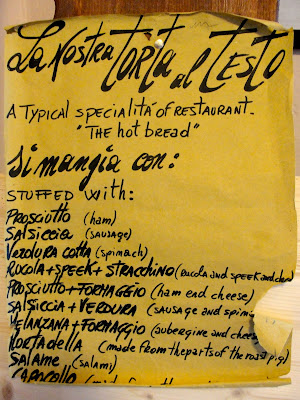 La Nostra TORTA al TESTO
A Typical specialitá of RESTAURANT-
"THE hot bread"
Si mangia con:
STUFFED with:
PROSCIUTTO (ham)
SALSICCIA (SAUSAGE)
VERDURA COTTA (spinach)
RUCOLA + SPEEK + STRACCHINO (RUCOLA and SPEEK and
PROSCIUTTO + FORMAGGIO (ham end cheese)
SALSICCIA + VERDURA (SAUSAGE and
MELANZANA + FORMAGGIO (AUBERGINE and
MORTADELLA (made from the parts of the roast pig)
SALAME (SALAMI)
CAPOCOLLO